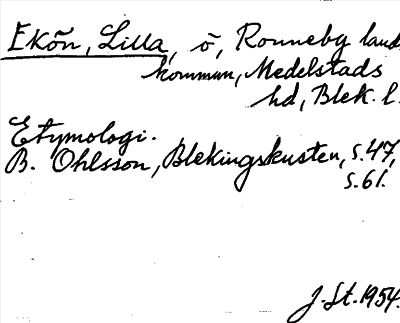 Ekön, Lilla, ö, Ronneby lands
kommun, Medelstads
hd, Blek. l.
Etymologi.
B. Ohlsson, Blekingskusten, s. 47,
s. 61.
J. St. 1954.